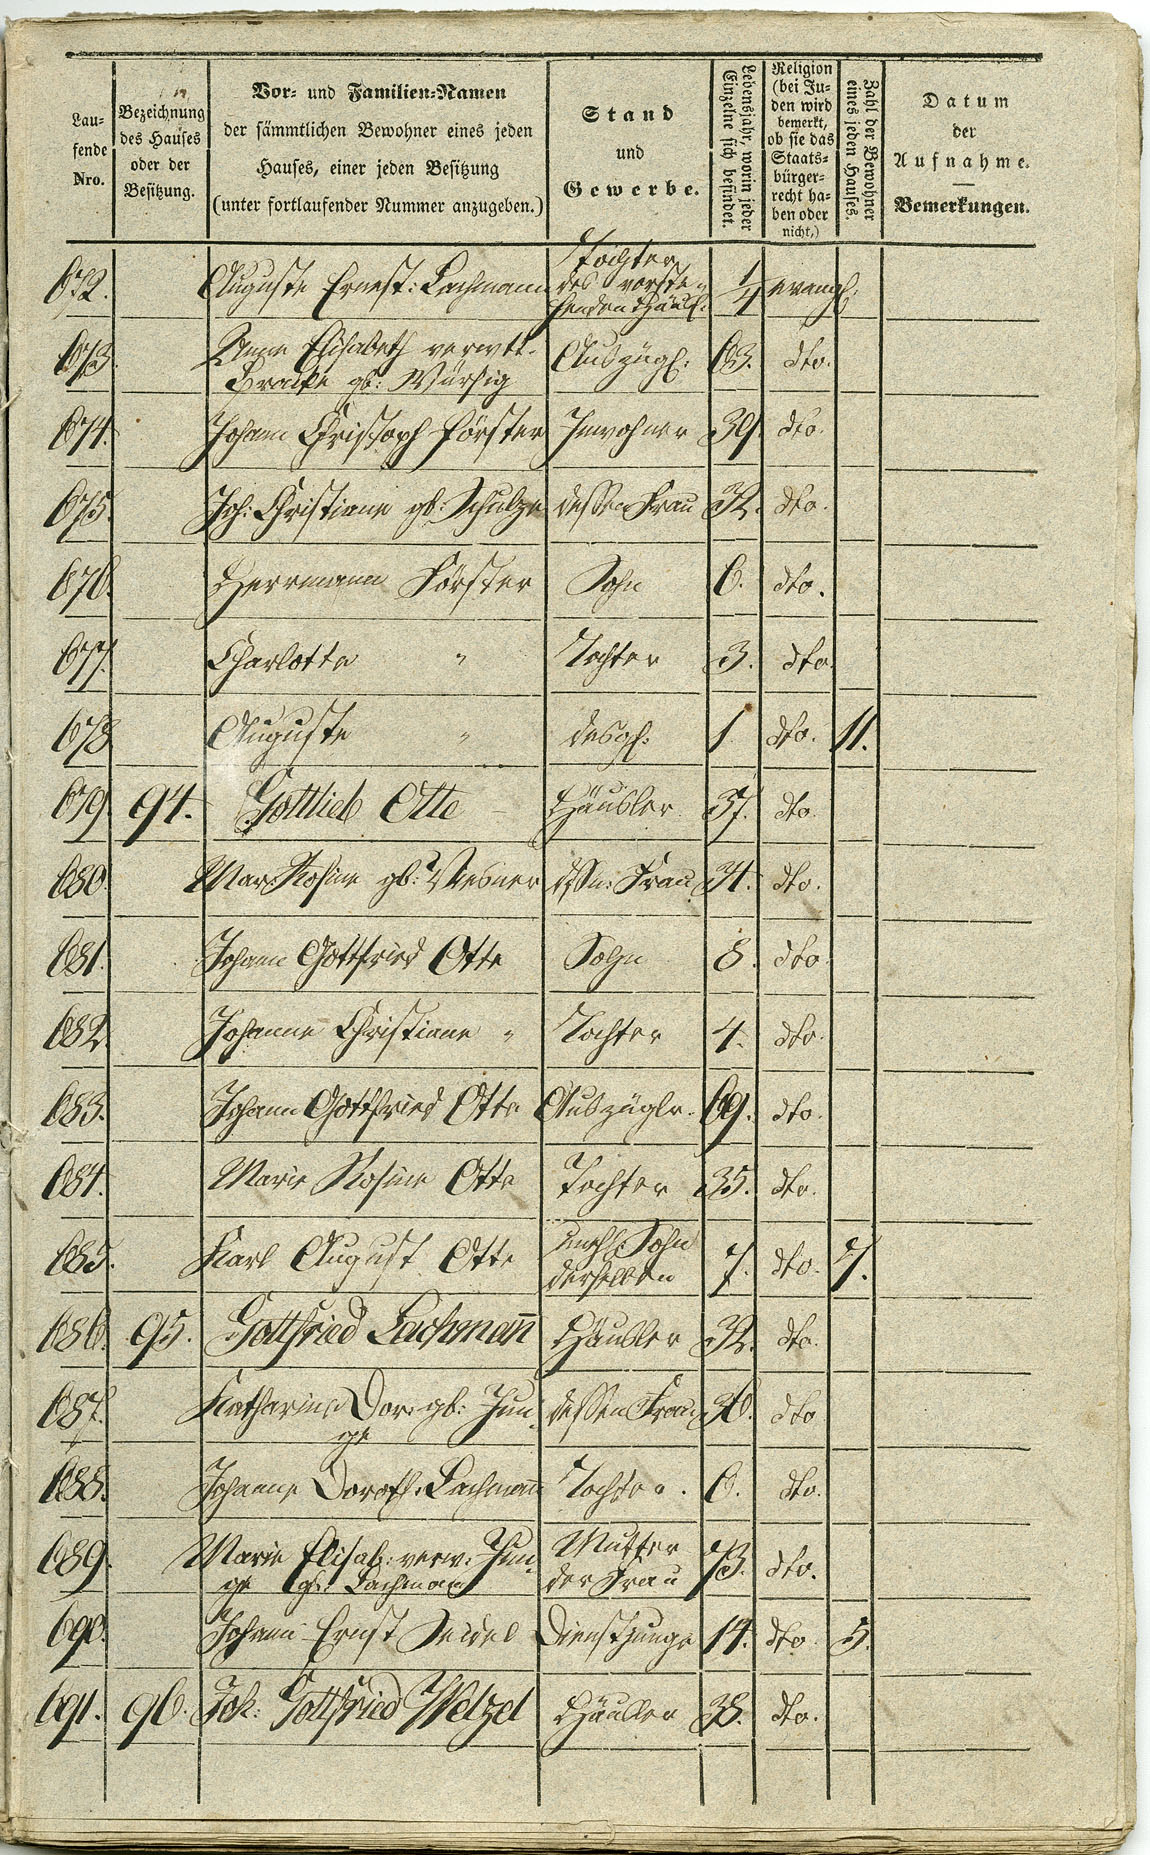 Lau-
fende
Nro.
Bezeichnung
des Hauses
oder der
Besitzung.
Vor- und Familien-Namen
der sämmtlichen Bewohner eines jeden
Hauses, einer jeden Besitzung
(unter fortlaufender Nummer anzugeben.)
Stand
und
Gewerbe.
Lebensjahr, worin jeder
Einzelne sich befindet.
Religion
(bei Ju-
den wird
bemerkt,
ob sie das
Staats-
bürger-
recht ha-
ben oder
nicht.)
Zahl der Bewohner
eines jeden Hauses.
Datum
der
Aufnahme.
Bemerkungen.
Tochter
672. Auguste Ernest: Lachmann des vorste- 1/4 evangl:
henden Häusl:
673. Anne Elisabeth verwtt. Auszügl: 63. dto.
gb: Würsig
674. Johann Christoph Förster Inwohner 39. dto.
675. Joh: Christiane gb: Schulze dessen Frau 32. dto.
676. Herrmann Förster Sohn 6. dto.
677. Charlotte " Tochter 3. dto
678 Auguste " desgl: 1 dto. 11.
679 94. Gottlieb Otte Häusler 37. dto.
680. Mar: Rosine gb: dssn: Frau 34. dto.
681. Johann Gottfried Otte Sohn 8. dto
682. Johanne Christiane " Tochter 4. dto.
683. Johann Gottfried Otte Auszüglr. 69. dto.
684. Marie Rosine Otte Tochter 35. dto.
685. Karl August Otte unehl: Sohn 7. dto. 7.
derselben
686. 95. Gottfried Lachmann Häusler 32. dto.
687. Katharina Dor: gb: Jun- dessen Frau 36. dto
ge
688. Johanne Doroth: Lachmann Tochter. 6. dto.
689. Marie Elisab: verw: Jun- Mutter 73. dto.
ge gb: Lachmann der Frau
690. Johann Ernst Seidel Dienstjunge 14. dto. 5.
691. 96. Joh: Gottfried Welzel Häusler 38. dto.